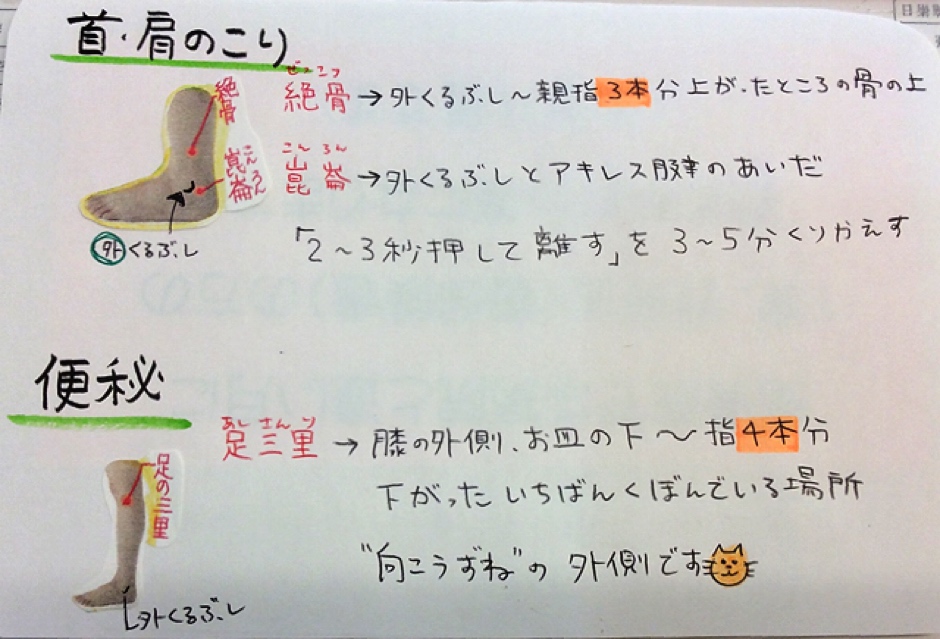 首・肩のこり
ぜっこつ
絶骨→外くるぶし〜親指3本分上がったところの骨の上
絶骨
こんろん
崑崙→外くるぶしとアキレス腱のあいだ
こんろん
崑崙
外くるぶし
「2〜3秒押して離す」を3〜5分くりかえす
便秘
あしさんり
足三里→膝の外側、お皿の下〜指4本分
下がったいちばんくぼんでいる場所
足の三里
"向こうずね"の外側です
外くるぶし